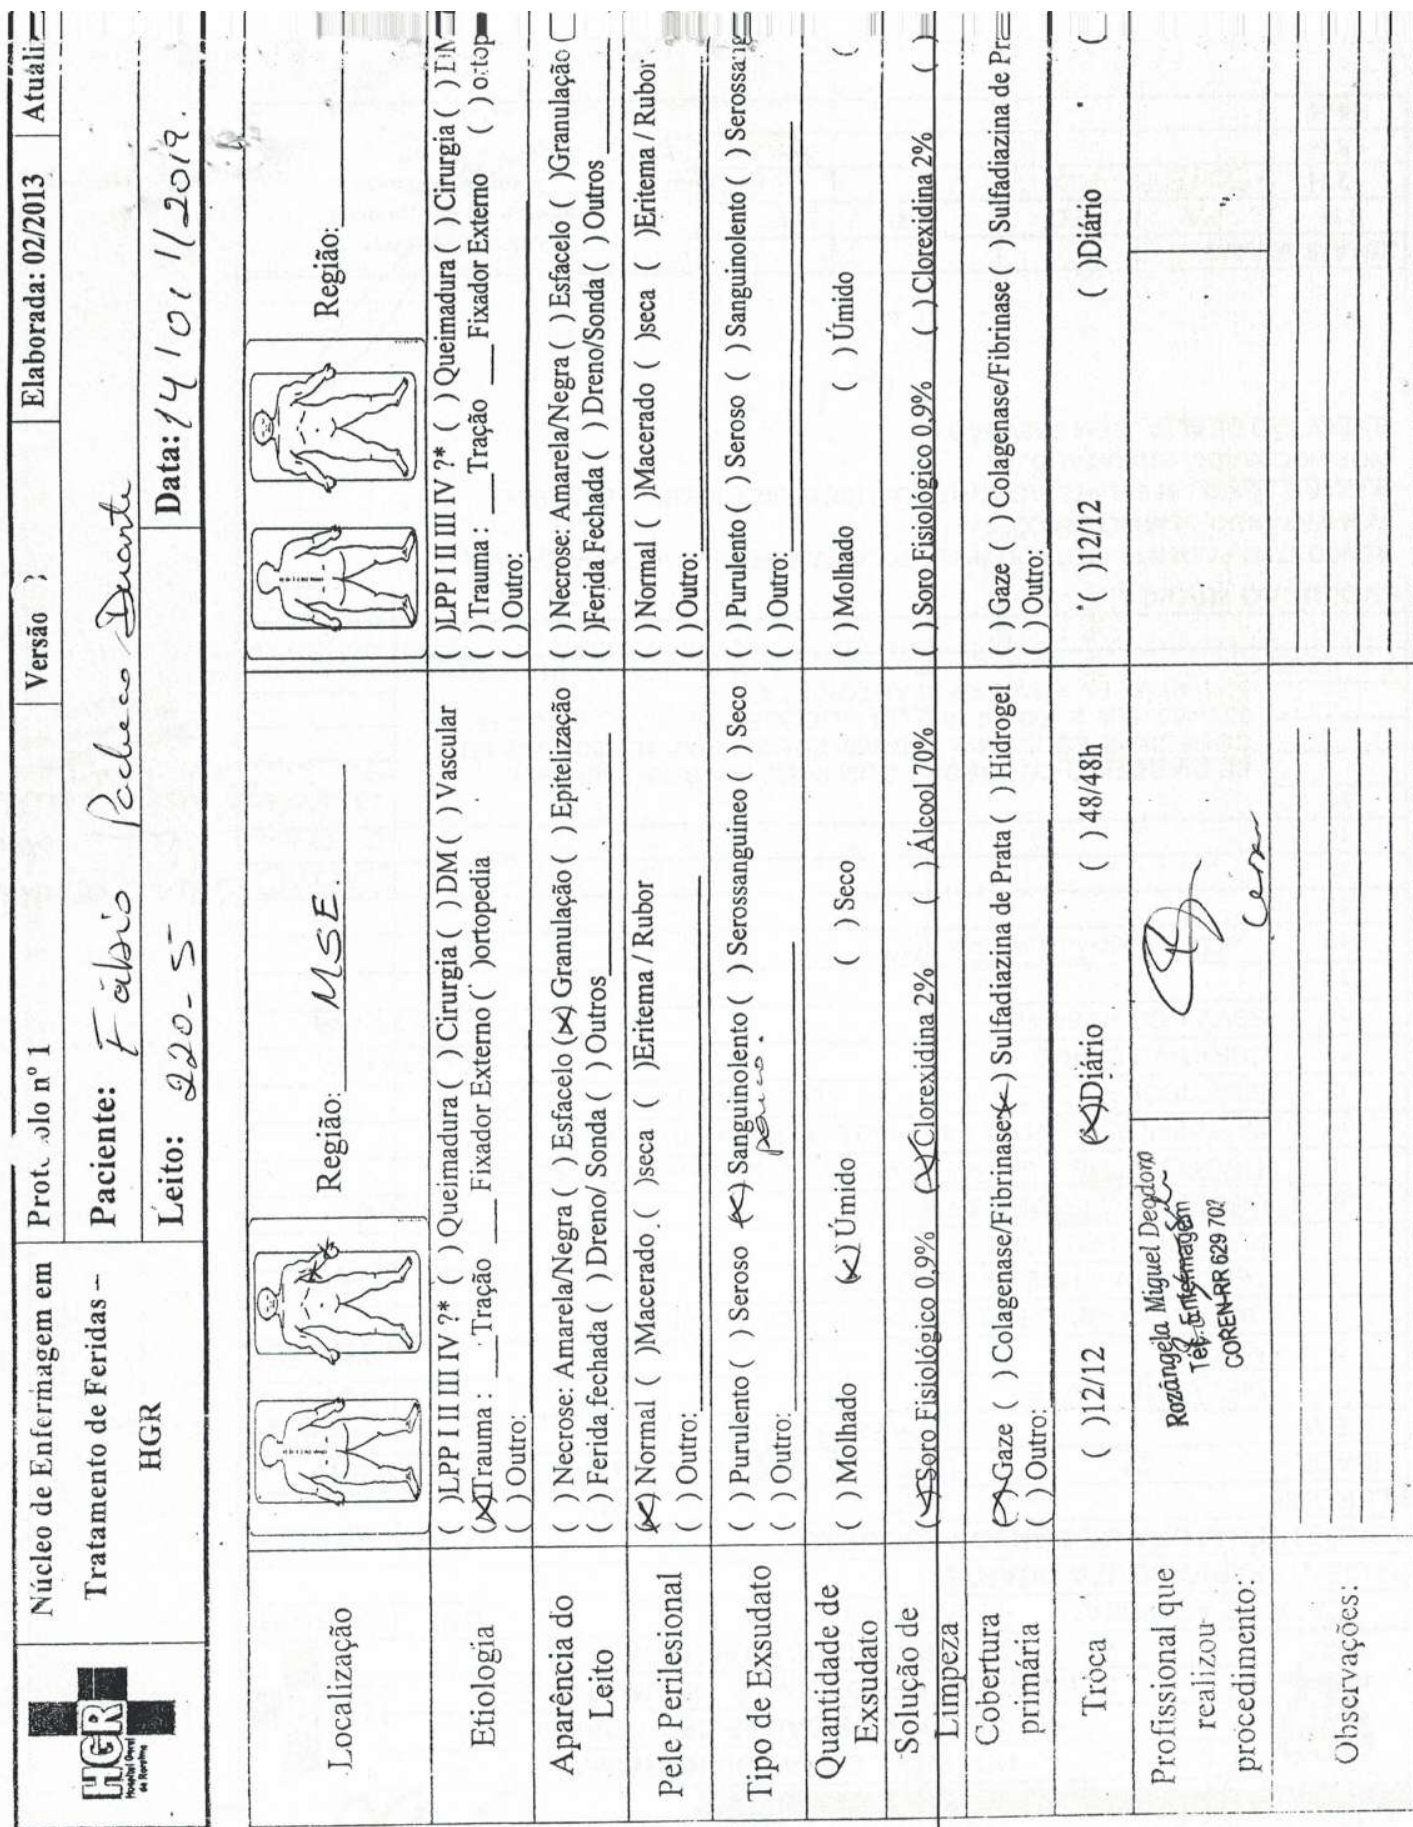 HGR
Hospital Geral
de Roraima
Núcleo de Enfermagem em
Tratamento de Feridas –
HGR
nº 1
Versão
Elaborada: 02/2013
Paciente: Fábio Pacheco Duarte
Leito: 220-5
Data: 14/01/2019.
Localização
Região: MSE.
Região:
Etiologia
( )LPP I II III IV ?* ( ) Queimadura ( ) Cirurgia ( ) DM ( ) Vascular
(X)Trauma : Tração Fixador Externo ( )ortopedia
( ) Outro:
( )LPP I II III IV ?* ( ) Queimadura ( ) Cirurgia ( )
( ) Trauma : Tração Fixador Externo ( )
( ) Outro:
Aparência do
Leito
( ) Necrose: Amarela/Negra ( ) Esfacelo (X) Granulação ( ) Epitelização
( ) Ferida fechada ( ) Dreno/ Sonda ( ) Outros
( ) Necrose: Amarela/Negra ( ) Esfacelo ( )Granulação
( )Ferida Fechada ( ) Dreno/Sonda ( ) Outros
Pele Perilesional
(X) Normal ( )Macerado ( )seca ( )Eritema / Rubor
( ) Outro:
( ) Normal ( )Macerado ( )seca ( )Eritema / Rubor
( ) Outro:
Tipo de Exsudato
( ) Purulento ( ) Seroso (X) Sanguinolento ( ) Serossanguineo ( ) Seco
pouco.
( ) Outro:
( ) Purulento ( ) Seroso ( ) Sanguinolento ( )
( ) Outro:
Quantidade de
Exsudato
( ) Molhado (X) Úmido ( ) Seco
( ) Molhado ( ) Úmido (
Solução de
Limpeza
(X)Soro Fisiológico 0,9% (X)Clorexidina 2% ( ) Álcool 70%
( ) Soro Fisiológico 0,9% ( ) Clorexidina 2% (
Cobertura
primária
(X)Gaze ( ) Colagenase/Fibrinase (X) Sulfadiazina de Prata ( ) Hidrogel
( ) Outro:
( ) Gaze ( ) Colagenase/Fibrinase ( ) Sulfadiazina de
( ) Outro:
Troca
( )12/12 (X)Diário ( ) 48/48h
12/12 ( )Diário (
Profissional que
realizou
procedimento:
Rozângela Miguel Deodoro
Téc. Enfermagem
COREN-RR 629 702
Observações: